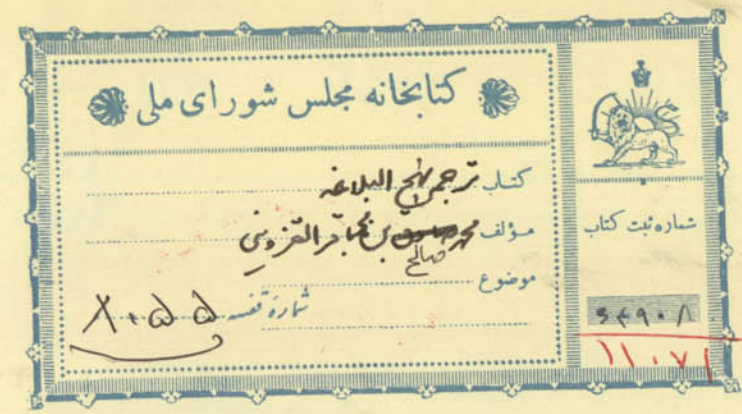 کتابخانه مجلس شورای ملی
کتاب ترجمه نهج البلاغه
مؤلف محمد صالح بن محمدباقر القزوینی
موضوع
شماره قفسه ۸۰۵۵
شماره ثبت کتاب
۶۴۹۰۸
۱۱۰۷۱